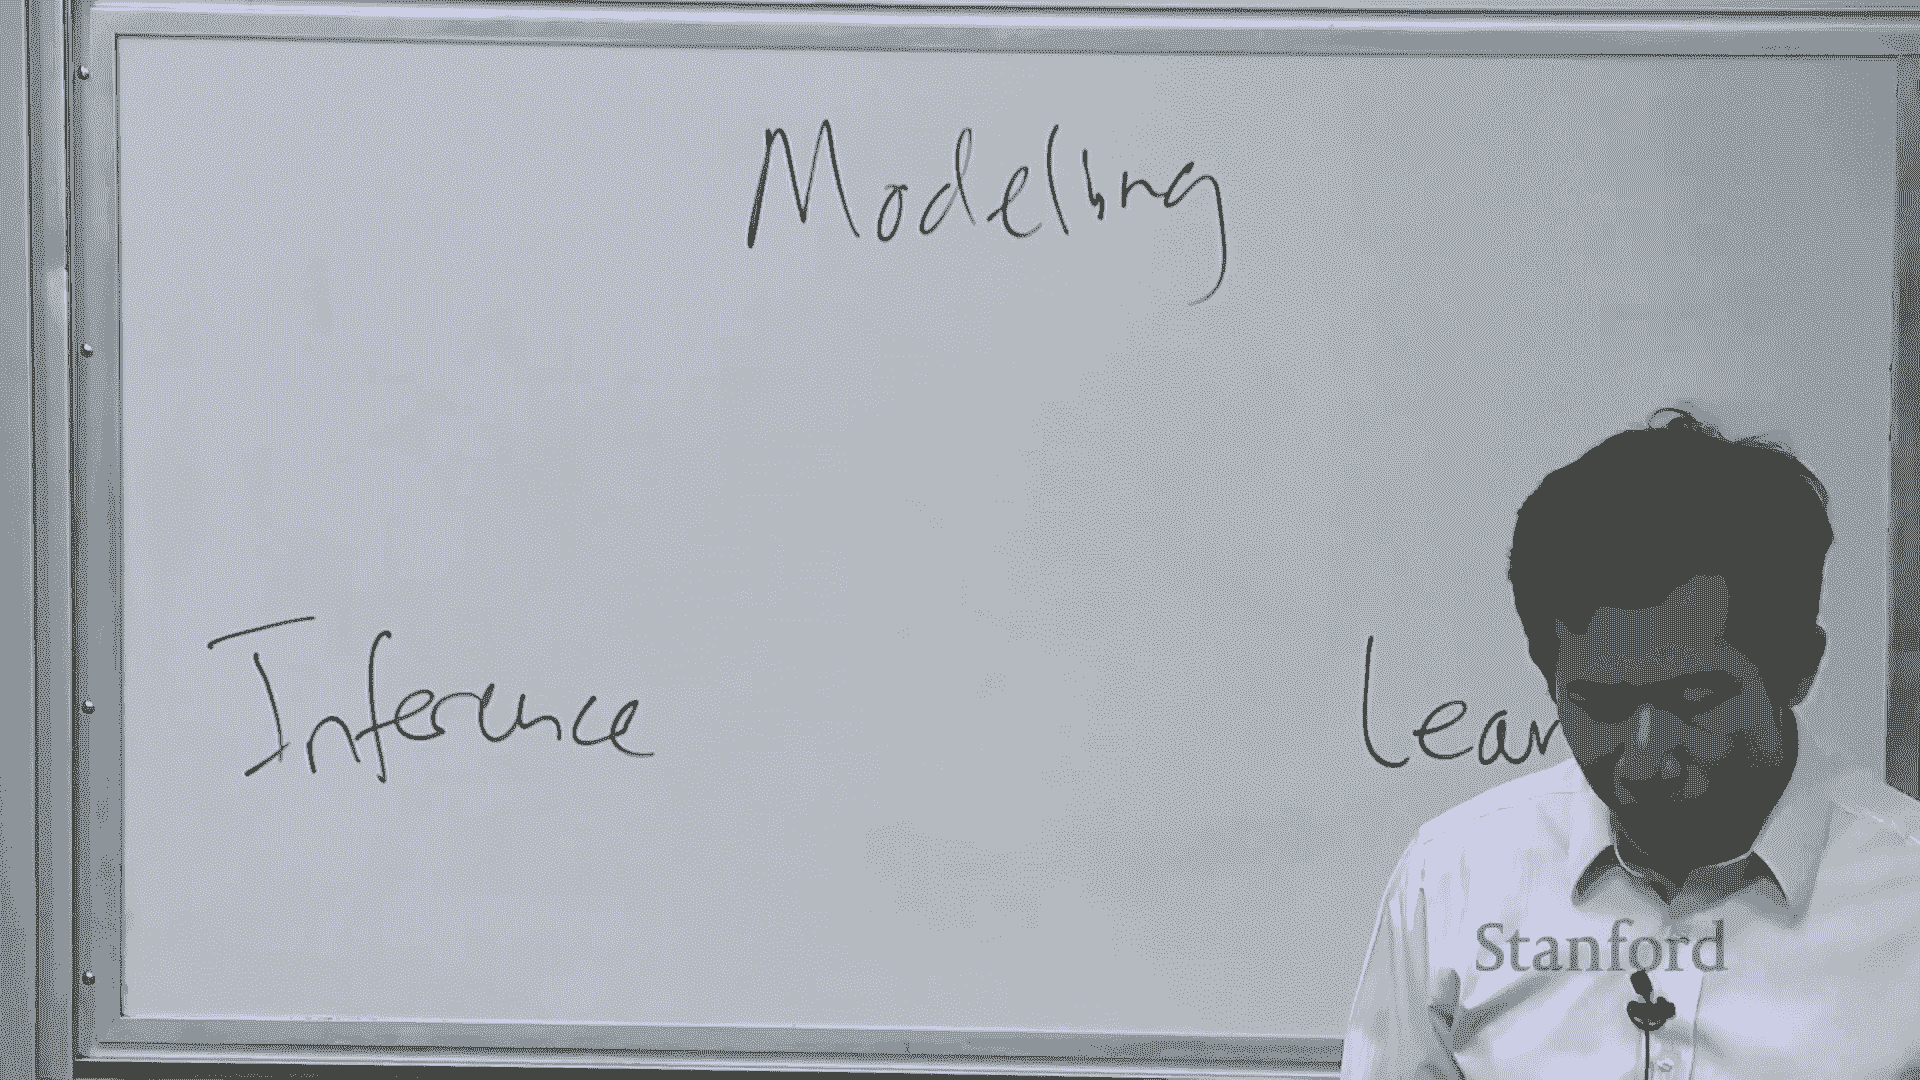 Modeling
Inference Lear
Stanford